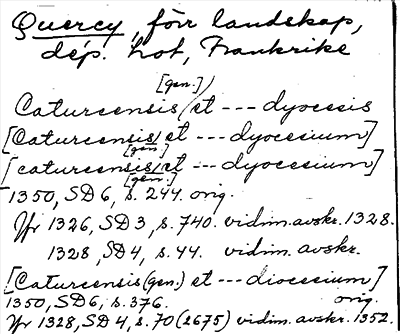 Quercy, förr landskap,
dép. Lot, Frankrike
[gen.]
Caturcensis/et --- dyocesis
[Caturcensis/et --- dyocesium]
[gen]
[caturcensis/et --- dyocesium]
[gen.]
1350, SD 6, s. 244. orig.
Jfr 1326, SD 3, s. 740. vidim. avskr. 1328.
1328, SD 4, s. 44. vidim. avskr.
[Caturcensis (gen.) et --- diocesium]
1350, SD 6, s. 376. orig.
Jfr 1328, SD 4, s. 70 (2675) vidim. avskr. 1352.